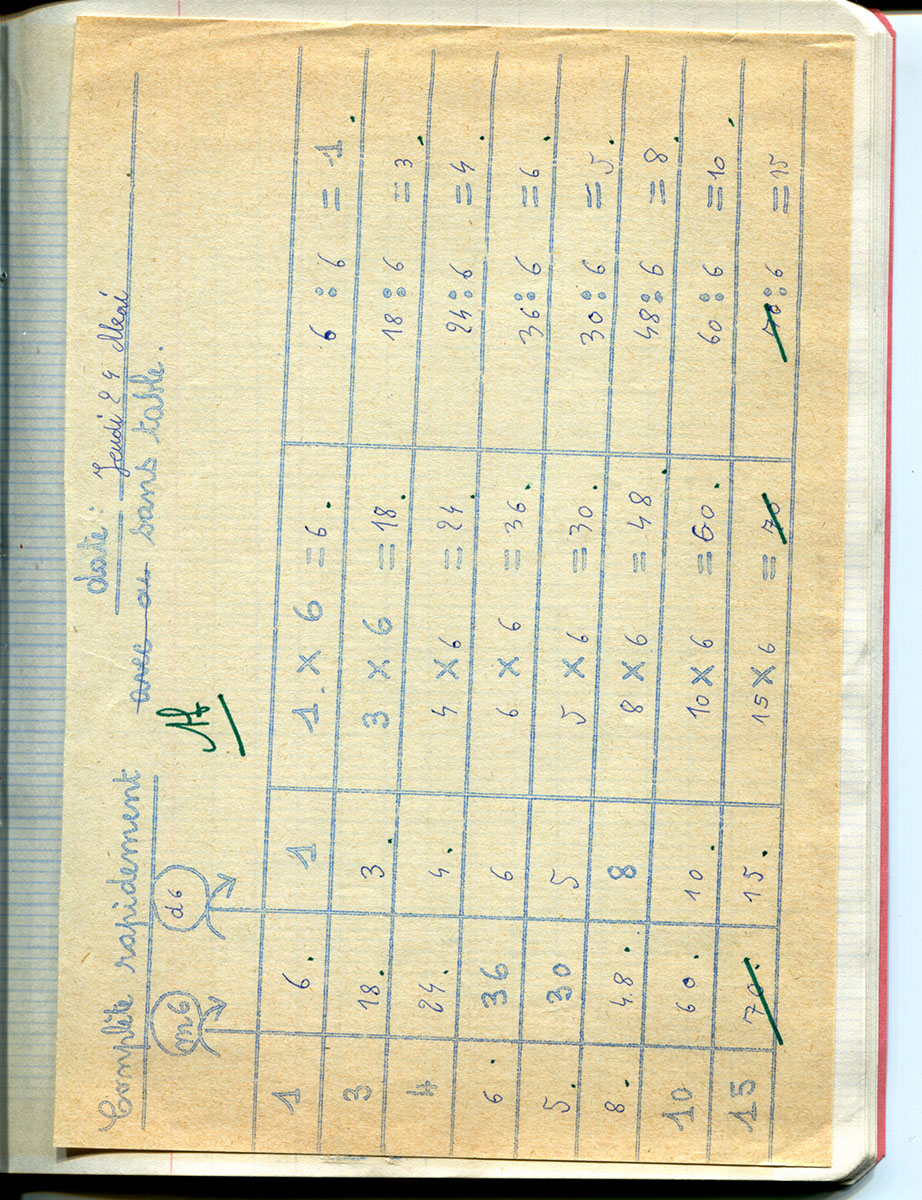 Complète rapidement date : Jeudi 24 Mai
avec ou sans table.
m6 d6 AB
1 6. 1 1. × 6 = 6. 6 : 6 = 1.
3 18. 3. 3 × 6 = 18. 18 : 6 = 3.
4 24. 4. 4 × 6 = 24. 24 : 6 = 4.
6. 36 6 6 × 6 = 36. 36 : 6 = 6.
5. 30 5 5 × 6 = 30. 30 : 6 = 5.
8. 48. 8 8 × 6 = 48. 48 : 6 = 8.
10 60. 10. 10 × 6 = 60. 60 : 6 = 10.
15 70. 15. 15 × 6 = 70 70 : 6 = 15